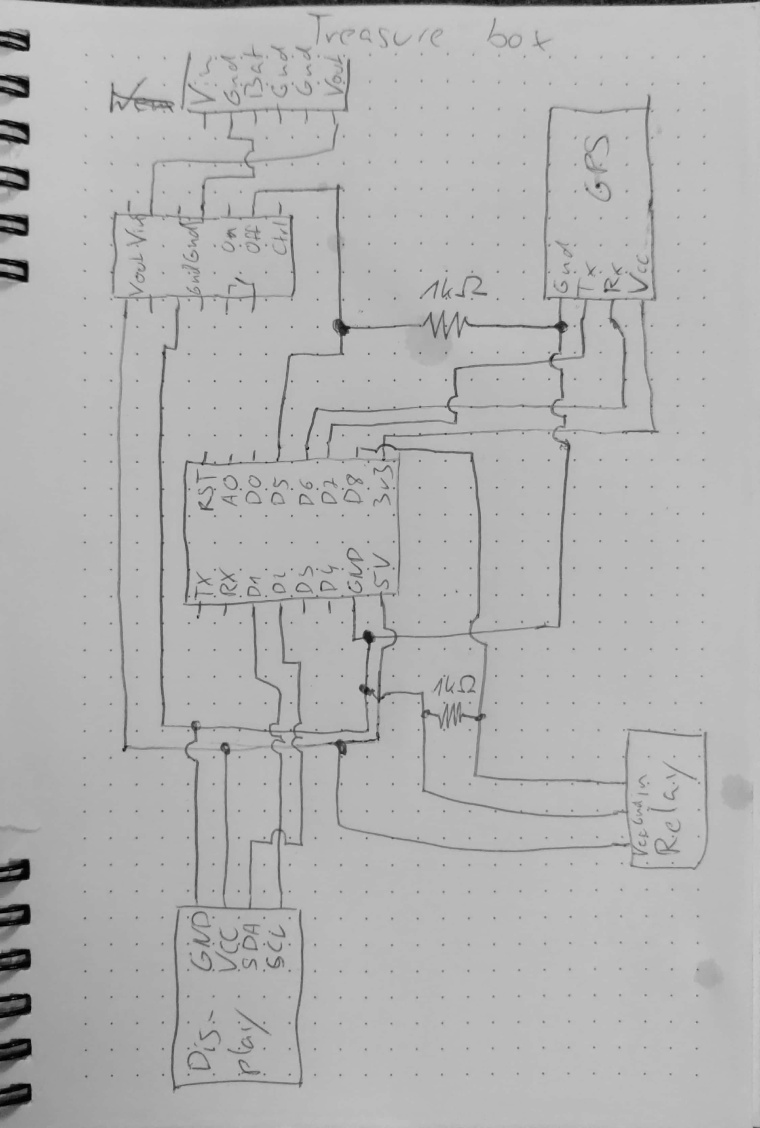 Treasure box
Vin
Gnd
Bat
Gnd
Gnd
Vout
Vout Vin
Gnd Gnd
On
Off
Ctrl
GPS
Gnd
Tx
Rx
Vcc
1kΩ
RST
A0
D0
D5
D6
D7
D8
3v3
TX
RX
D1
D2
D3
D4
GND
5V
1kΩ
Vcc Gnd in
Relay
GND
VCC
SDA
SCL
Dis-
play